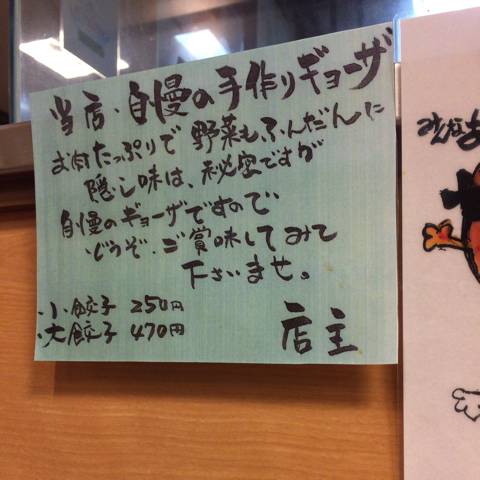 当店・自慢の手作りギョーザ
お肉たっぷりで野菜もふんだんに
隠し味は、秘密ですが
自慢のギョーザですので
どうぞ、ご賞味してみて
下さいませ。
小餃子 250円
大餃子 470円
店主
みんな